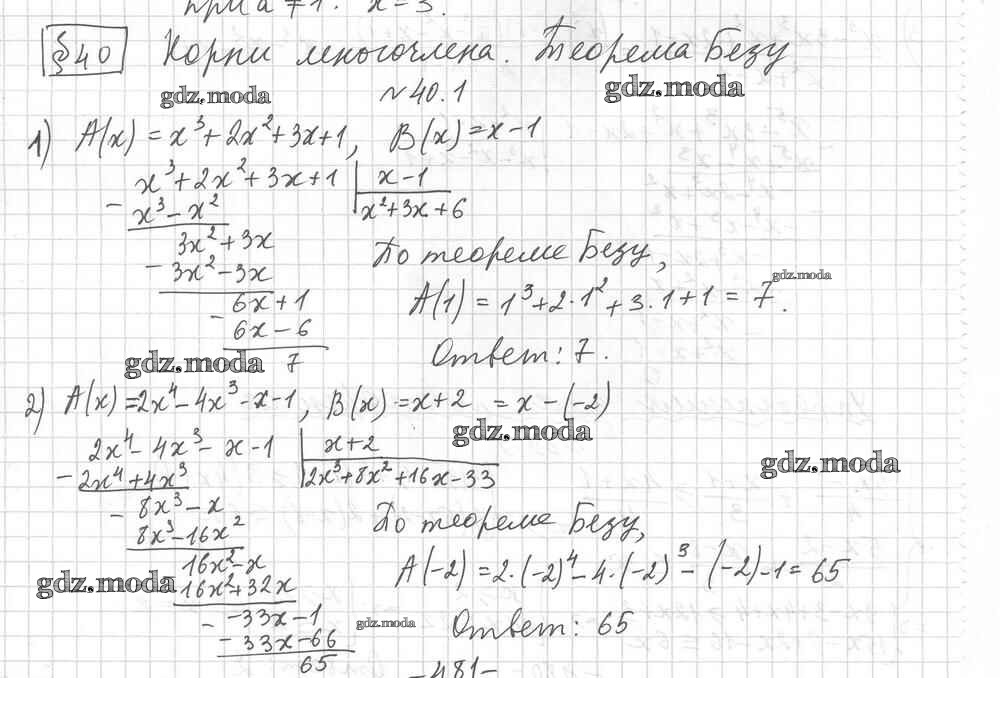 при a ≠ 1. x = 3.
§40 Корни многочлена. Теорема Безу
gdz.moda
gdz.moda
№ 40.1
1) A(x) = x³ + 2x² + 3x + 1, B(x) = x - 1
x³ + 2x² + 3x + 1 | x - 1
- x³ - x² | x² + 3x + 6
3x² + 3x
- 3x² - 3x
6x + 1
- 6x - 6
7
По теореме Безу,
gdz.moda
A(1) = 1³ + 2·1² + 3·1 + 1 = 7.
Ответ: 7.
gdz.moda
2) A(x) = 2x⁴ - 4x³ - x - 1, B(x) = x + 2 = x - (-2)
gdz.moda
2x⁴ - 4x³ - x - 1 | x + 2
- 2x⁴ + 4x³ | 2x³ + 8x² + 16x - 33
gdz.moda
- 8x³ - x
8x³ - 16x²
16x² - x
16x² + 32x
- -33x - 1
- 33x - 66
65
По теореме Безу,
A(-2) = 2·(-2)⁴ - 4·(-2)³ - (-2) - 1 = 65
gdz.moda
gdz.moda
Ответ: 65
- 481 -